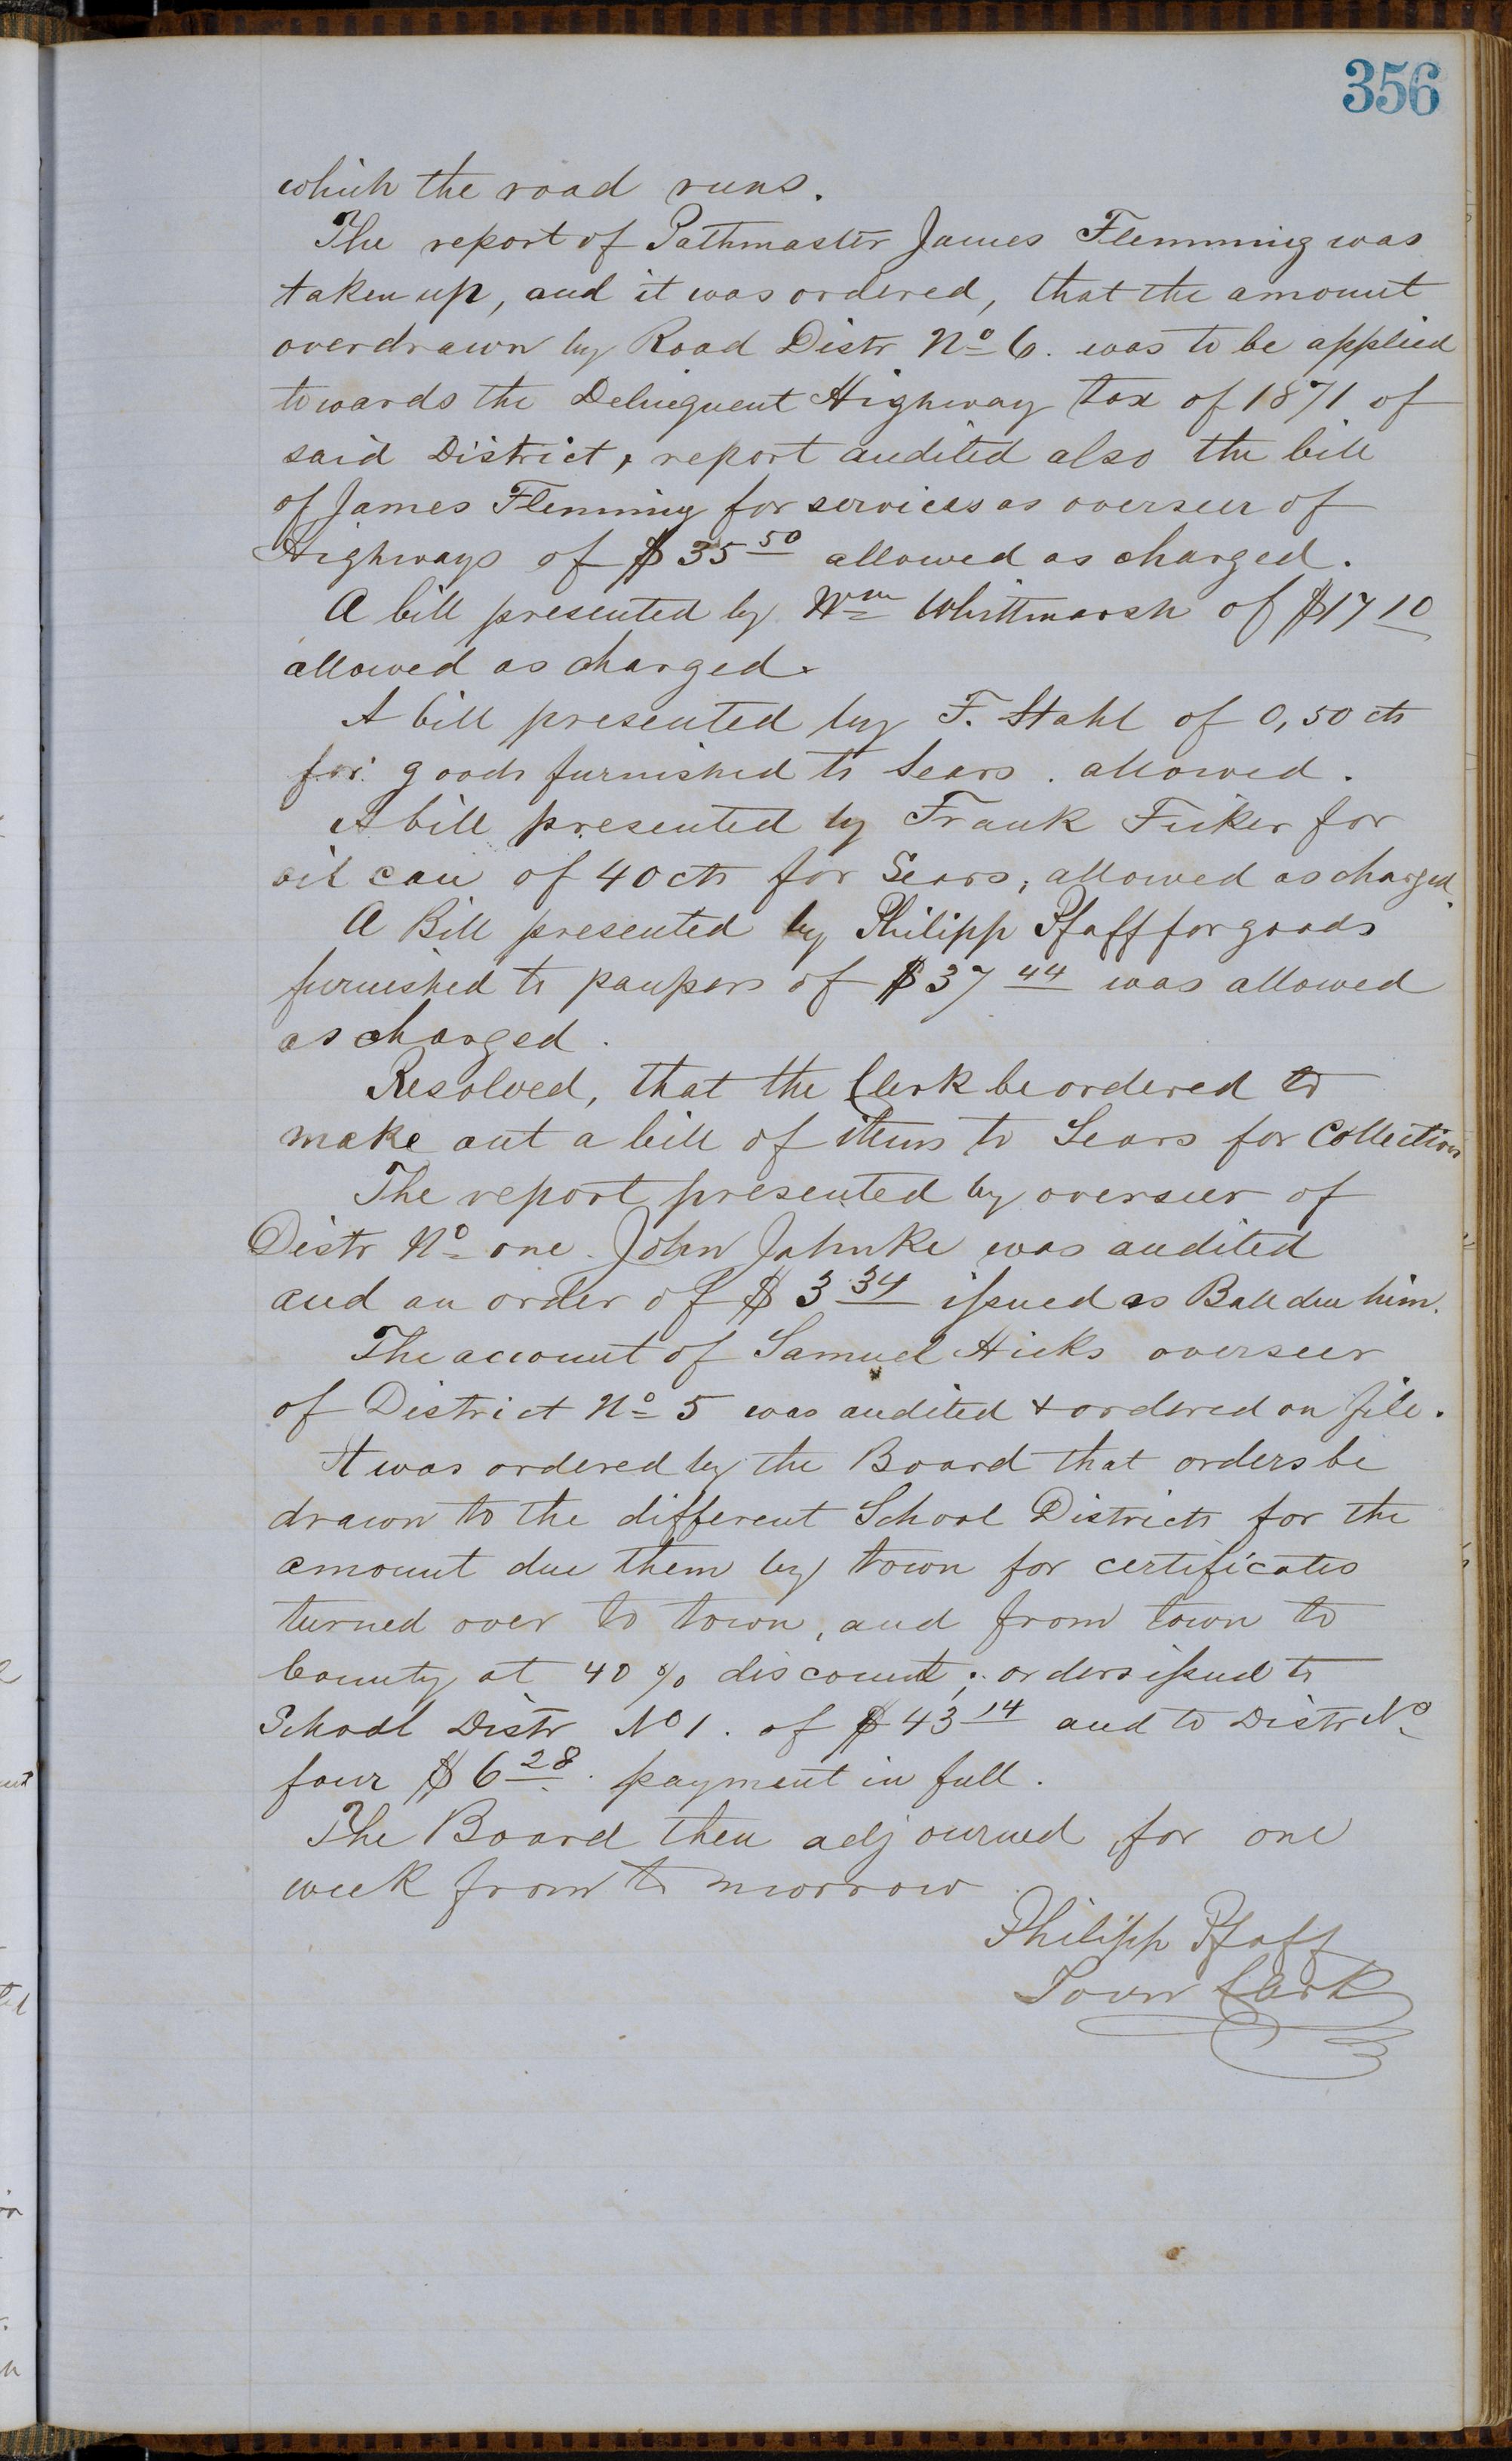 356
which the road runs.
The report of Pathmaster James Flemming was
taken up, and it was ordered, that the amount
overdrawn by Road Distr No 6. was to be applied
towards the Delinquent Highway tax of 1871 of
said District, report audited also the bill
of James Flemming for services as overseer of
Highways of $35 50 allowed as charged.
A bill presented by Wm Whittmarsh of $17 10
allowed as charged.
A bill presented by F. Stahl of 0,50 cts
for goods furnished to Sears. allowed.
A bill presented by Frank Ficker for
oil can of 40 cts for Sears, allowed as charged.
A Bill presented by Philipp Pfaff for goods
furnished to paupers of $37 44 was allowed
as charged.
Resolved, that the Clerk be ordered to
make out a bill of items to Sears for Collection
The report presented by overseer of
Distr No one. John Jahnke was audited
and an order of $3 34 issued as Ball due him.
The account of Samuel Hicks overseer
of District No 5 was audited & ordered on file.
It was ordered by the Board that orders be
drawn to the different School Districts for the
amount due them by town for certificates
turned over to town, and from town to
County at 40 % discount; orders issued to
School Distr No 1. of $43 14 and to Distr No
four $6 28. payment in full.
The Board then adjourned for one
week from to morrow
Philipp Pfaff
Town Clerk